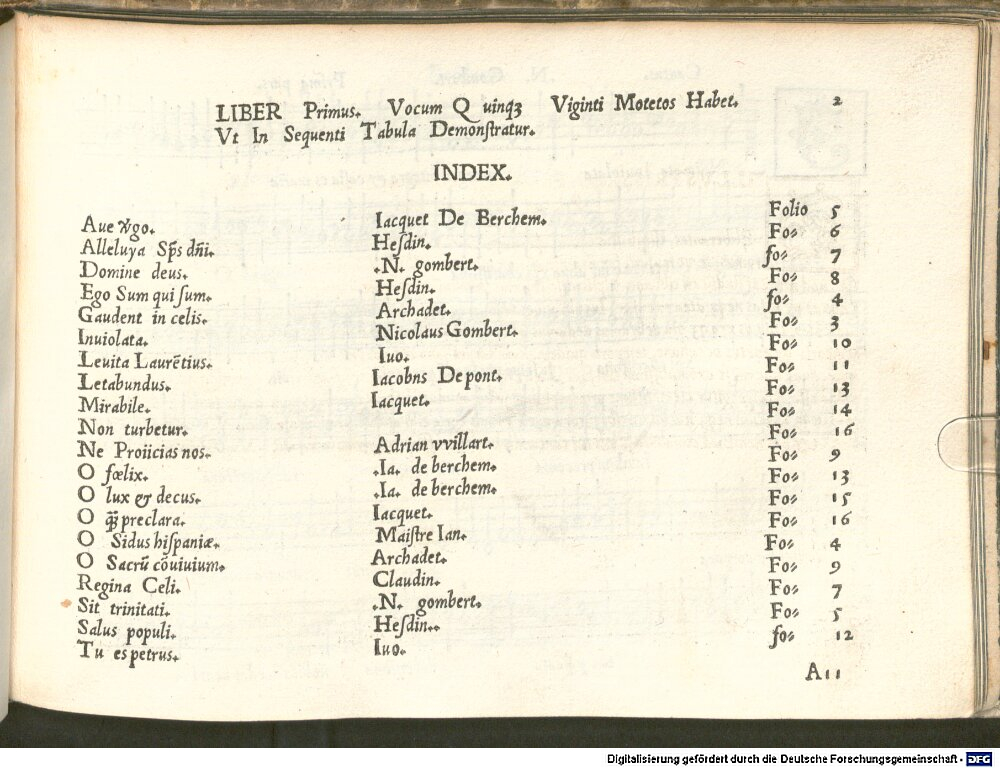 LIBER Primus. Vocum Q uinqȝ Viginti Motetos Habet. 2
Vt In Sequenti Tabula Demonſtratur.
INDEX.
Aue ꝟgo. Iacquet De Berchem. Folio 5
Alleluya Sp̃s dñi. Heſdin. Fo: 6
Domine deus. .N. gombert. fo: 7
Ego Sum qui ſum. Heſdin. Fo: 8
Gaudent in celis. Archadet. fo: 4
Inuiolata. Nicolaus Gombert. Fo: 3
Leuita Laurẽtius. Iuo. Fo: 10
Letabundus. Iacobns Depont. Fo: 11
Mirabile. Iacquet. Fo: 13
Non turbetur. Fo: 14
Ne Proiicias nos. Adrian vvillart. Fo: 16
O fœlix. .Ia. de berchem. Fo: 9
O lux & decus. .Ia. de berchem. Fo: 13
O q̃ꝫ preclara. Iacquet. Fo: 15
O Sidus hiſpaniæ. Maiſtre Ian. Fo: 16
O Sacrũ cõuiuium. Archadet. Fo: 4
Regina Celi. Claudin. Fo: 9
Sit trinitati. .N. gombert. Fo: 7
Salus populi. Heſdin.. Fo: 5
Tu es petrus. Iuo. fo: 12
A 11
Digitalisierung gefördert durch die Deutsche Forschungsgemeinschaft - DFG